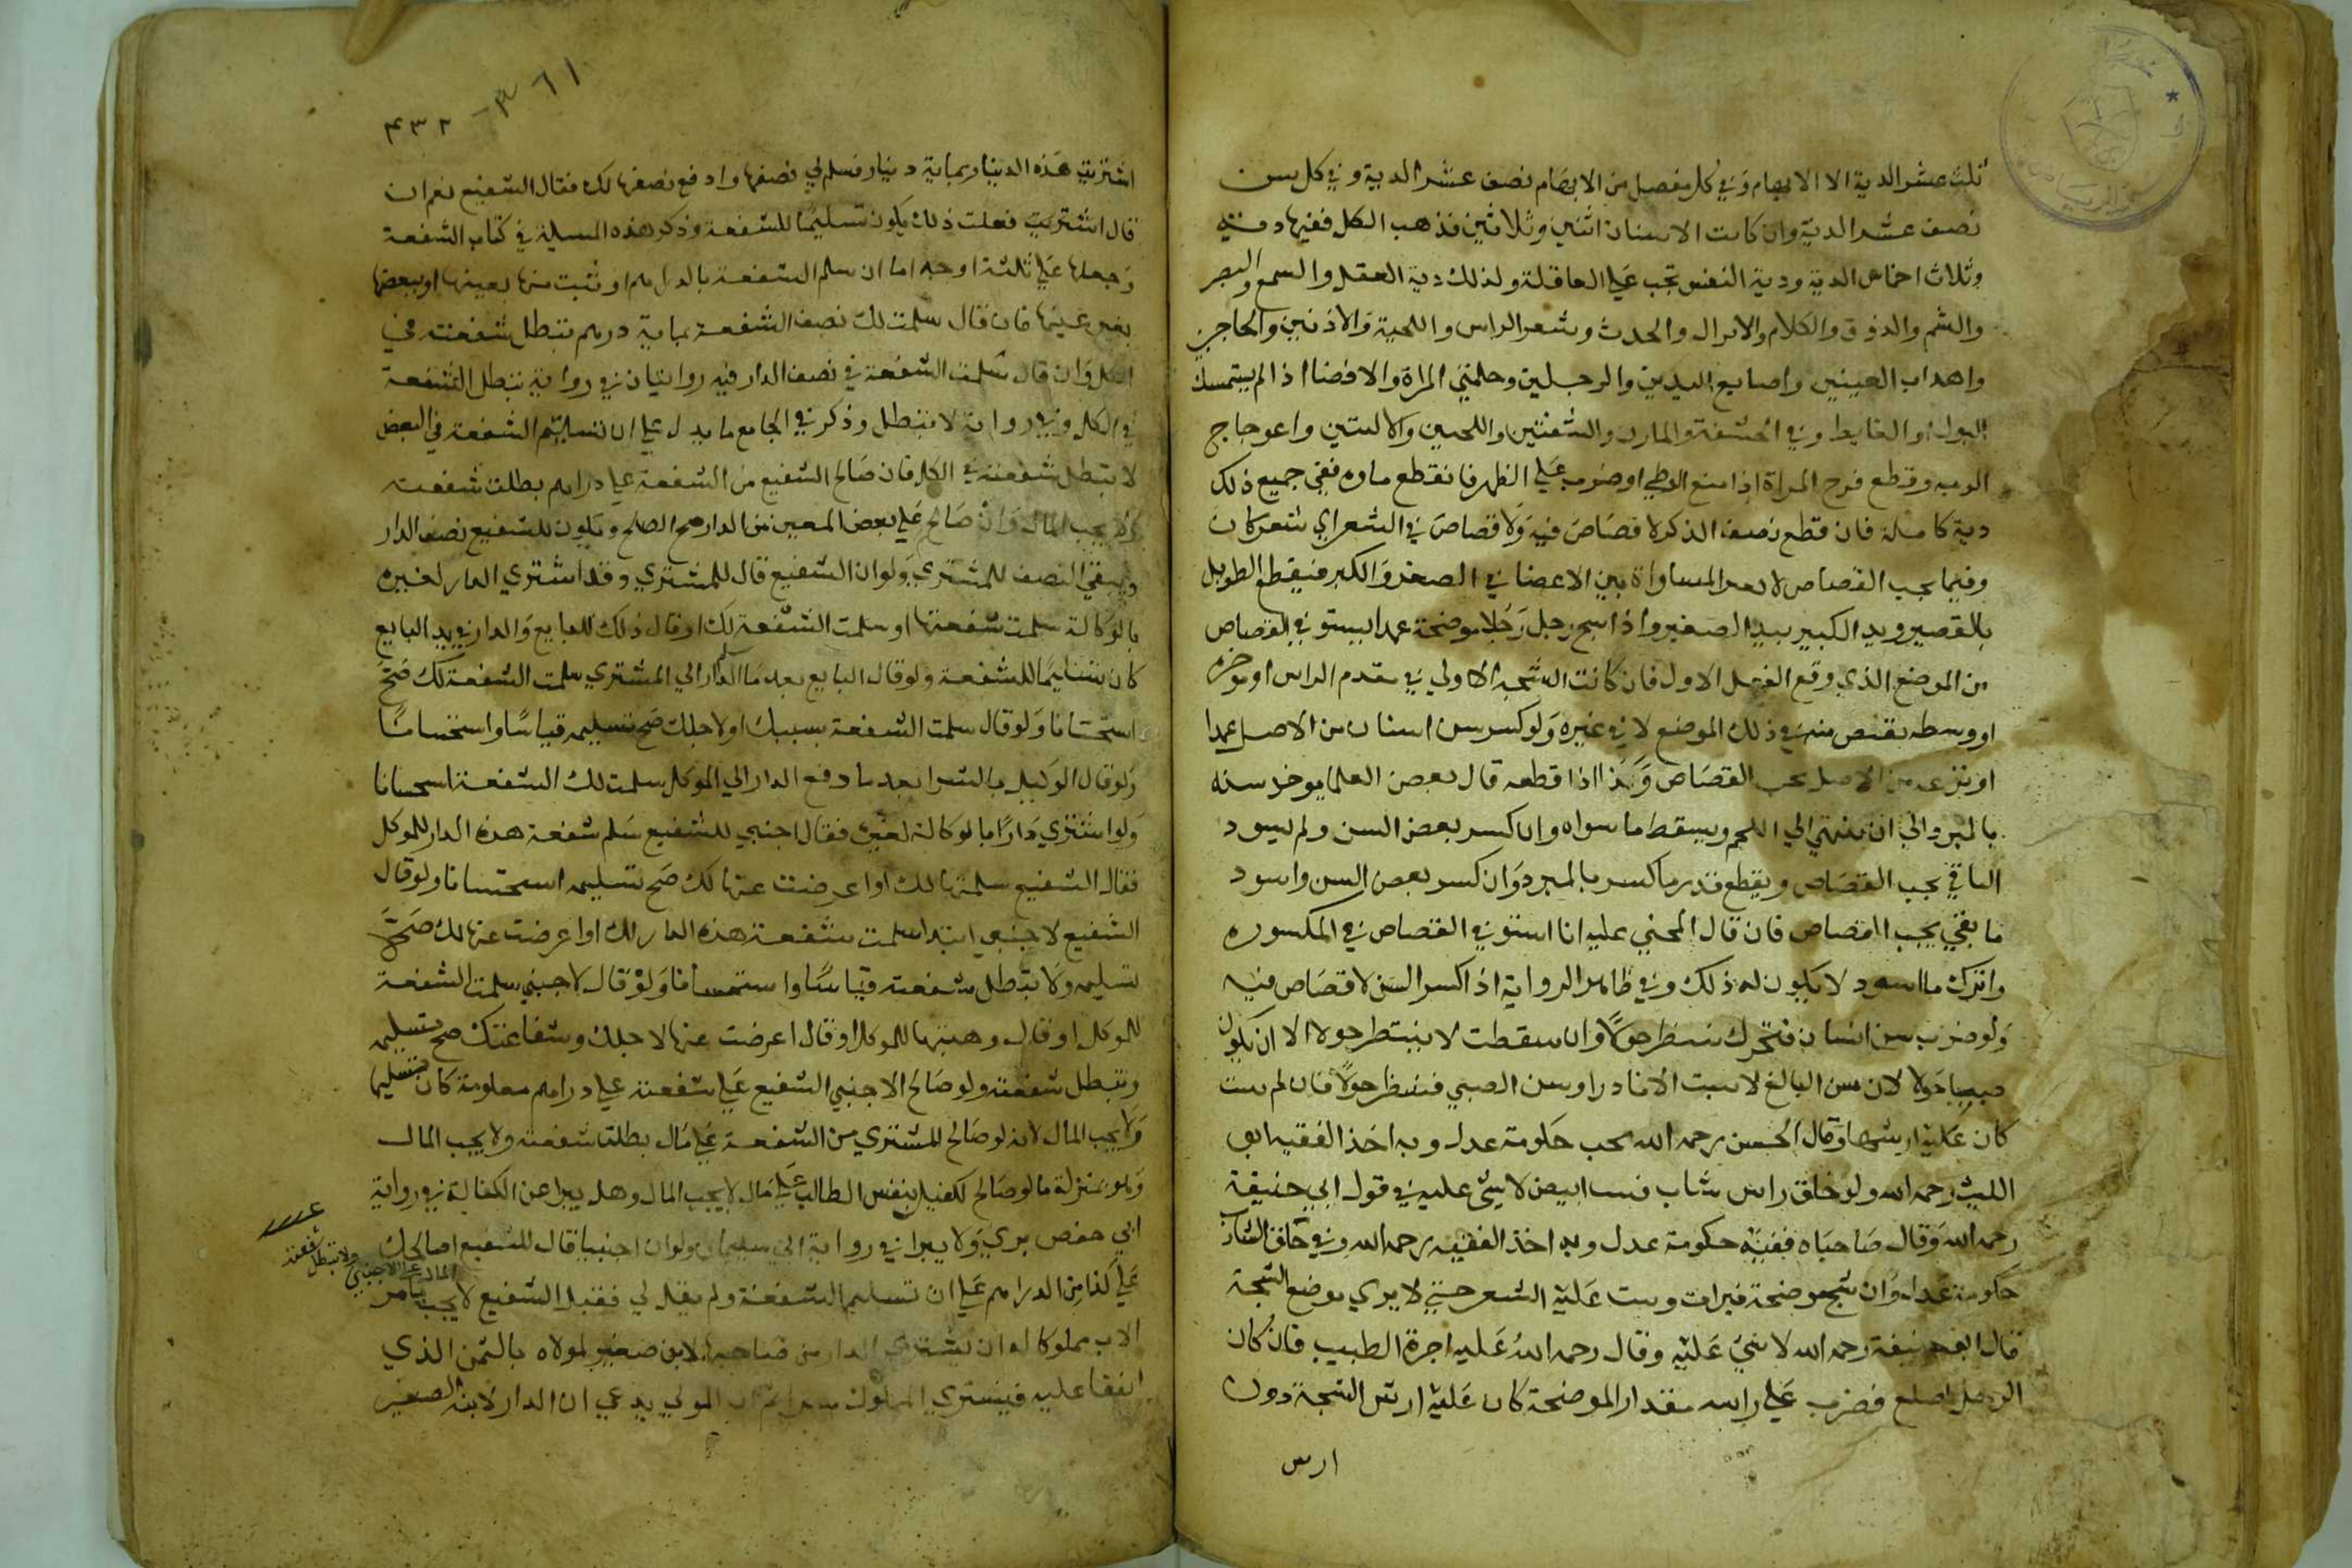 ثلث عشر الدية الا الابهام وفي كل مفصل من الابهام نصف عشر الدية وفي كل سن
نصف عشر الدية وان كانت الاسنان اثنين وثلاثين فذهب الكل ففيها دية
وثلاث اخماس الدية ودية النفس تجب على العاقلة ولذلك دية العقل والسمع والبصر
والشم والذوق والكلام والانزال والحدث وشعر الراس واللحية والاذنين والحاجبين
واهداب العينين واصابع اليدين والرجلين وحلمتي المراة والافضا اذا لم يستمسك
البول او الغايط وفي الحشفة والمارن والشفتين واللحيين والاليتين واعوجاج
الوجه وقطع فرج المراة اذا منع الوطي او ضرب على الظهر فانقطع ماوه ففي جميع ذلك
دية كاملة فان قطع نصف الذكر لا قصاص فيه ولا قصاص في الشعر اي شعر كان
وفيما يجب القصاص لا المساواة بين الاعضا في الصغر والكبر فيقطع الطويل
بالقصير ويد الكبير بيد الصغير واذا شج رجل رجلا موضحة عمدا يستوفي القصاص
من الموضع الذي وقع الفعل الاول فان كانت الشجة الاولى في مقدم الراس او موخره
او وسطه يقتص منه في ذلك الموضع لا في غيره ولو كسر سن انسان من الاصل عمدا
او نزعه من الاصل يجب القصاص وكذا اذا قطعه قال بعض العلما يوخذ سنه
بالمبرد الى ان ينتهي الى اللحم ويسقط ما سواه وان كسر بعض السن ولم يسود
الباقي يجب القصاص ويقطع قدر ما كسر بالمبرد وان كسر بعض السن واسود
ما بقي يجب القصاص فان قال المجني عليه انا استوفي القصاص في المكسوره
واترك ما اسود لا يكون له ذلك وفي ظاهر الرواية اذا كسر السن لا قصاص فيه
ولو ضرب سن انسان فتحرك ينتظر حولا وان سقطت لا ينتظر حولا الا ان يكون
صبيا حولا لان سن البالغ لا ينبت الا نادرا وسن الصبي فينتظر حولا فان لم ينبت
كان عليه ارشها وقال الحسن رحمه الله يجب حكومة عدل وبه اخذ الفقيه ابو
الليث رحمه الله ولو حلق راس شاب فنبت ابيض لا شئ عليه في قول ابي حنيفة
رحمه الله وقال صاحباه ففيه حكومة عدل وبه اخذ الفقيه رحمه الله وفي حلق الشارب
حكومة عدل وان شج موضحة فبرات ونبت عليه الشعر حتى لا يرى موضع الشجة
قال ابو حنيفة رحمه الله لا شئ عليه وقال رحمه الله عليه اجرة الطبيب فان كان
الرجل اصلع فضرب على راسه مقدار الموضحة كان عليه ارش الشجة دون
ارش
٣٦١
٤٣٢
اشتريت هذه الدنيار بماية دنيار فسلم لي نصفها وادفع نصفها لك فقال الشفيع نعم ان
قال اشتريت فعلت ذلك يكون تسليما للشفعة وذكر هذه المسلة في كتاب الشفعة
وجعلها على ثلثة اوجه اما ان سلم الشفعة بالدراهم او تثبت منها بعينها او ببعضها
بغير عينها فان قال سلمت لك نصف الشفعة بماية درهم تبطل شفعته في
الكل وان قال سلمت الشفعة في نصف الدار فيه روايتان في رواية تبطل الشفعة
في الكل وفي رواية لا تبطل وذكر في الجامع ما يدل على ان تسليم الشفعة في البعض
لا تبطل شفعته في الكل فان صالح الشفيع من الشفعة على دراهم بطلت شفعته
ولا يجب المال وان صالح على بعض المعين من الدار صح الصلح ويكون للشفيع نصف الدار
ويبقى النصف للمشتري ولو ان الشفيع قال للمشتري وقد اشترى الدار لغيره
بالوكالة سلمت شفعتها او سلمت الشفعة لك او قال ذلك للبايع والدار في يد البايع
كان تسليما للشفعة ولو قال البايع بعد ما سلم الدار الى المشتري سلمت الشفعة لك صح
استحسانا ولو قال سلمت الشفعة بسببك او لاجلك صح تسليمه قياسا واستحسانا
ولو قال الوكيل بالشرا بعد ما دفع الدار الى الموكل سلمت لك الشفعة استحسانا
ولو اشترى دارا بالوكالة لغيره فقال اجنبي للشفيع سلم شفعة هذه الدار للموكل
فقال الشفيع سلمتها لك او اعرضت عنها لك صح تسليمه استحسانا ولو قال
الشفيع لاجنبي ابتدا سلمت شفعة هذه الدار لك او اعرضت عنها لك صح
تسليمه ولا تبطل شفعته قياسا واستحسانا ولو قال لاجنبي سلمت الشفعة
للموكل او قال وهبتها للموكل او قال اعرضت عنها لاجلك وشفاعتك صح تسليمه
وتبطل شفعته ولو صالح الاجنبي الشفيع على شفعته على دراهم معلومة كان تسليما
ولا يجب المال لانه لو صالح المشتري من الشفعة على مال بطلت شفعته ولا يجب المال
وهو بمنزلة ما لو صالح لكفيل بنفس الطالب على مال لا يجب المال وهل يبرا عن الكفالة في رواية
ابي حفص بري ولا يبرا في رواية ابي سليمان ولو ان اجنبيا قال للشفيع اصالحك
على كذا من الدراهم على ان تسليم الشفعة ولم يقل لي فقبل الشفيع لا يجب
المال على الاجنبي ولا تبطل شفعته
الاب مملوكا له ان يشتري الدار من صاحبها لابن صغير لمولاه بالثمن الذي
اتفقا عليه فيشتري المملوك المولى يدعي ان الدار لابنه الصغير